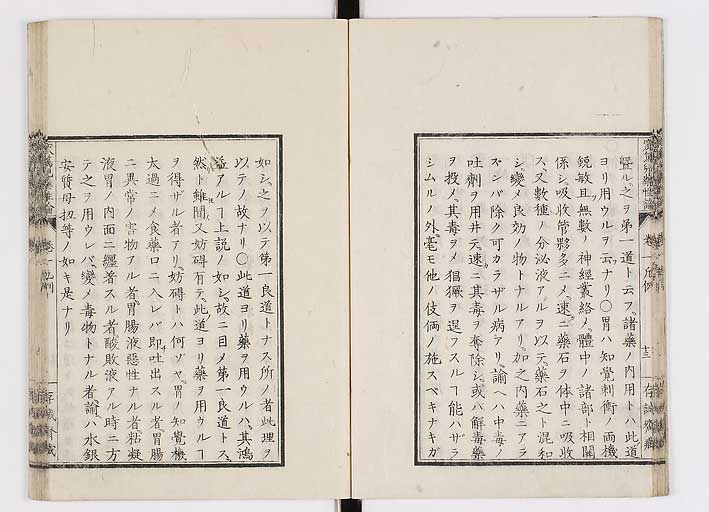 竪ル、之ヲ第一道ト云フ、諸藥ノ内用トハ此道
ヨリ用ウルヲ云ナリ〇胃ハ知覺刺衝ノ兩機
鋭敏且無數ノ神經叢絡メ體中ノ諸部ト相關
係シ、吸收管夥多ニメ、速ニ藥石ヲ体中ニ吸收
ス又數種ノ分泌液アルヲ以テ、藥石之ト混和
シ、變メ良効ノ物トナルアリ、加之内藥ニアラ
ズンバ除ク可カラザル病アリ、諭ヘハ中毒ノ
吐劑ヲ用井テ速ニ其毒ヲ奪除シ、或ハ解毒藥
ヲ投メ其毒ヲメ猖獗ヲ逞フスルヿ能ハザラ
シムルノ外、毫モ他ノ伎倆ノ施スベキナキガ
如シ、之ヲ以テ第一良道トナス所ノ者此理ヲ
以テノ故ナリ〇此道ヨリ藥ヲ用ウルハ、其鴻
益アルヿ上説ノ如シ、故ニ目メ第一良道トス、
然ト雖間又妨碍有テ、此道ヨリ藥ヲ用ウルヿ
ヲ得ザル者アリ、妨碍トハ何ゾヤ、胃ノ知覺機
太過ニメ食藥口ニ入レバ即吐出スル者胃腸
ニ異常ノ害物アル者、胃腸液惡性ナル者粘凝
液胃ノ内面ニ纒著スル者酸敗液アル時ニ方
テ之ヲ用ウレバ、變メ毒物トナル者諭ハ水銀
安質母扭等ノ如キ是ナリ